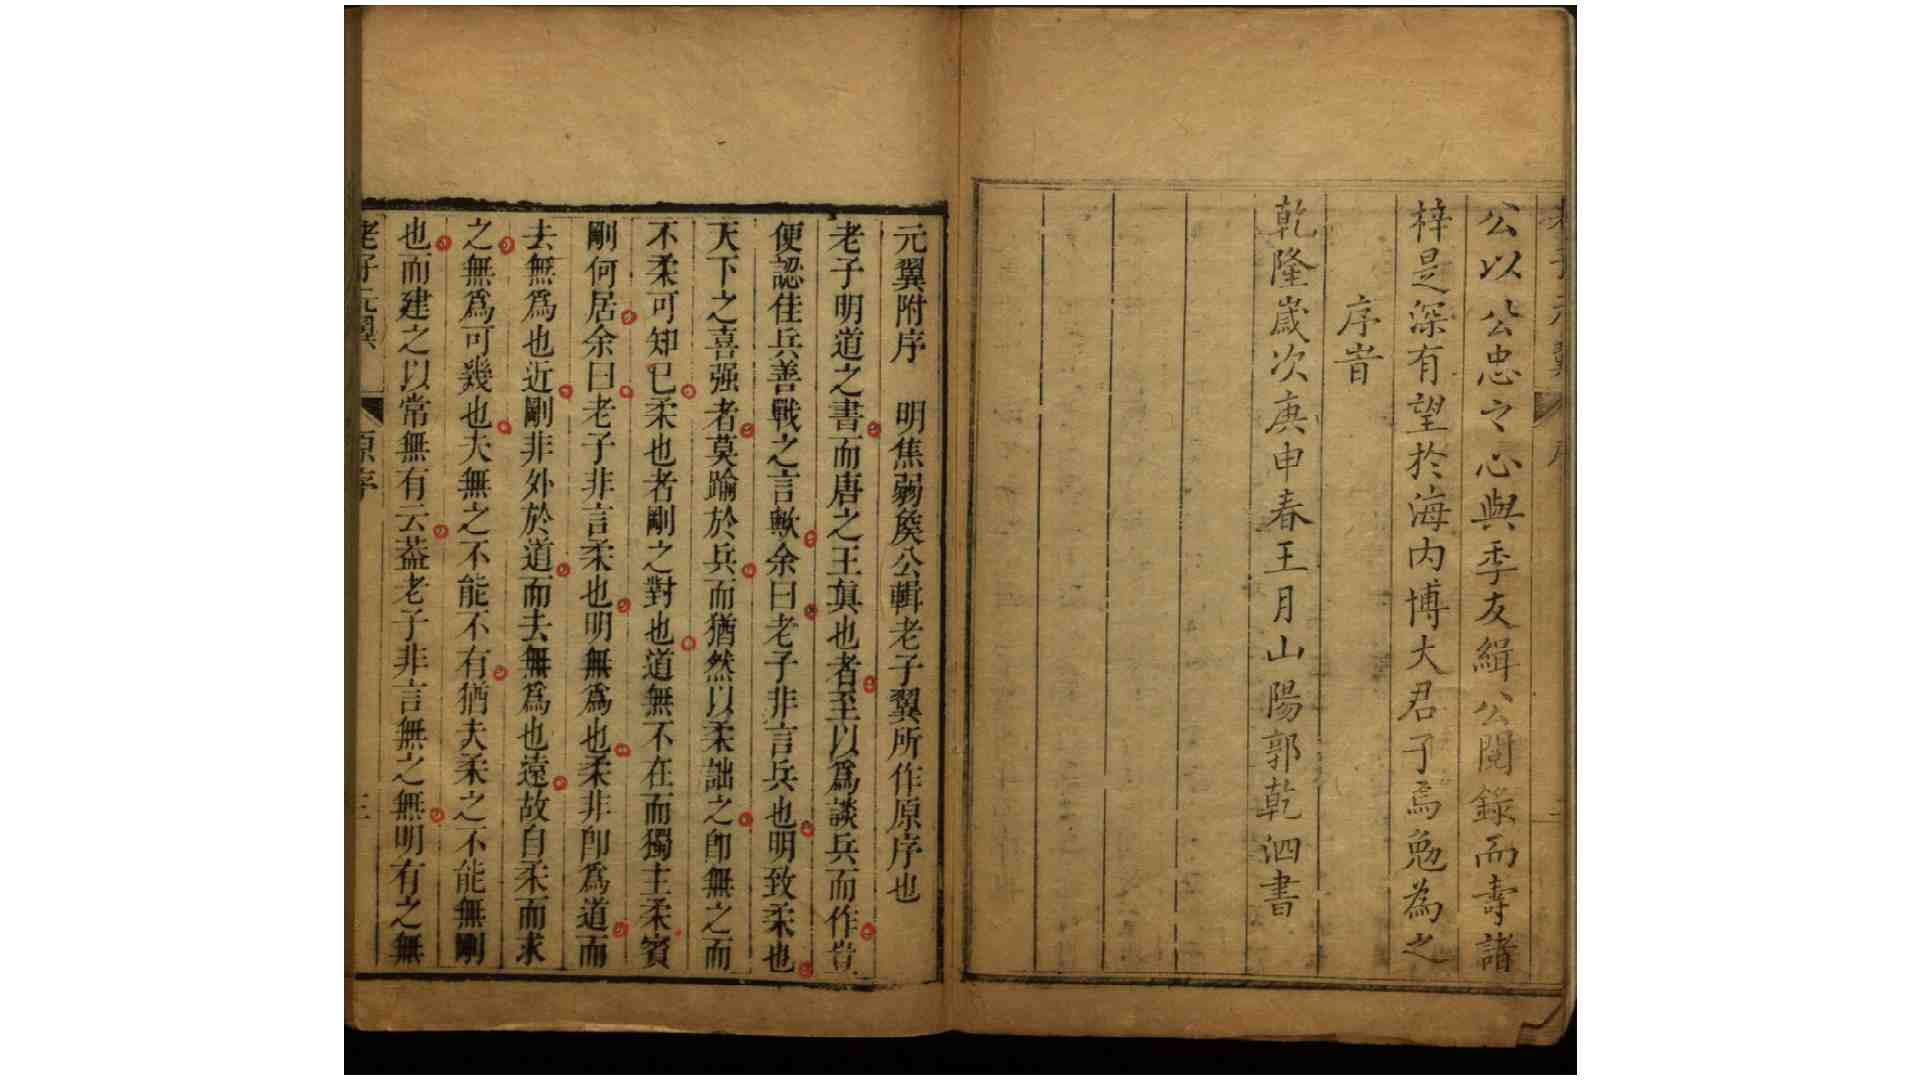 公以公忠之心與季友緝公閱錄而壽諸
梓是深有望於海内博大君子焉勉為之
序旹
乾隆嵗次庚申春王月山陽郭乾泗書
元翼附序 明焦弱矦公輯老子翼所作原序也
老子明道之書而唐之王眞也者至以爲談兵而作豈
便認佳兵善戰之言歟余曰老子非言兵也明致柔也
天下之喜强者莫踰於兵而猶然以柔詘之卽無之而
不柔可知已柔也者剛之對也道無不在而獨主柔賓
剛何居余曰老子非言柔也明無爲也柔非卽爲道而
去無爲也近剛非外於道而去無爲也遠故自柔而求
之無爲可幾也夫無之不能不有猶夫柔之不能無剛
也而建之以常無有云葢老子非言無之無明有之無
老子元翼 原序 三